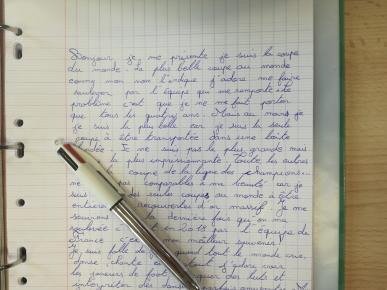 Bonjour je me présente je suis la coupe
du monde. La plus belle coupe au monde
comme mon nom l'indique j'adore me faire
soulever par l'équipe qui me remporte le
problème c'est que je ne me fait porter
que tous les quatres ans. Mais au moins je
je suis la plus belle car je suis la seule
coupe à être transportée dans une boîte
Je ne suis pas la plus grande mais
la plus impressionnante. Toute les autres
coupe de la ligue des champions
ne pas comparables à ma beauté car je
suis des seules coupes au monde à être
entièrement recouvertes d'or massif. Je me
souviens la dernière fois qu'on ma
soulevée c' en 2018 par l'équipe de
France c' mon meilleur souvenir.
Je suis folle de quand tout le monde crie,
danse, chante adore voir
les joueurs de foot quer des buts et
interpréter des danses parfois amusantes